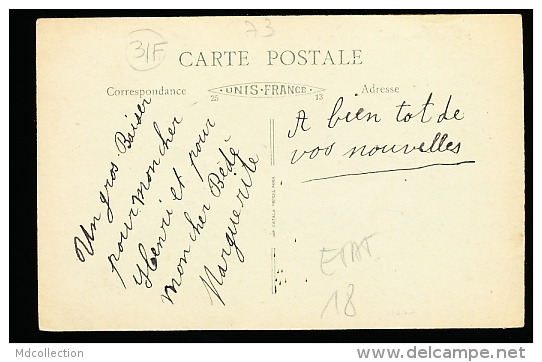 31F
73
CARTE POSTALE
Correspondance
UNIS-FRANCE
Adresse
25
13
Un gros Baiser
pour mon cher
Henri et pour
mon cher Bébé
Marguerite
A bien tot de
vos nouvelles
ETAT
18
Mdcollection
www.delcampe.net